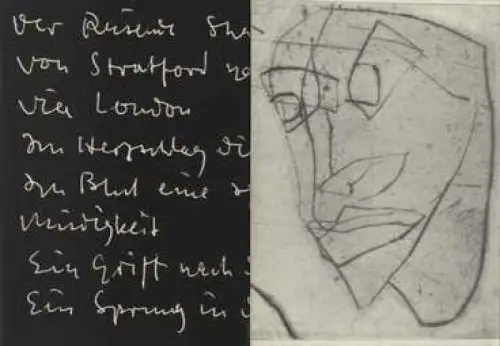 Der Reisende Sha
von Stratford
via London
Im Herzschlag di
Im Blut eine
Müdigkeit
Ein Griff nach
Ein Sprung in